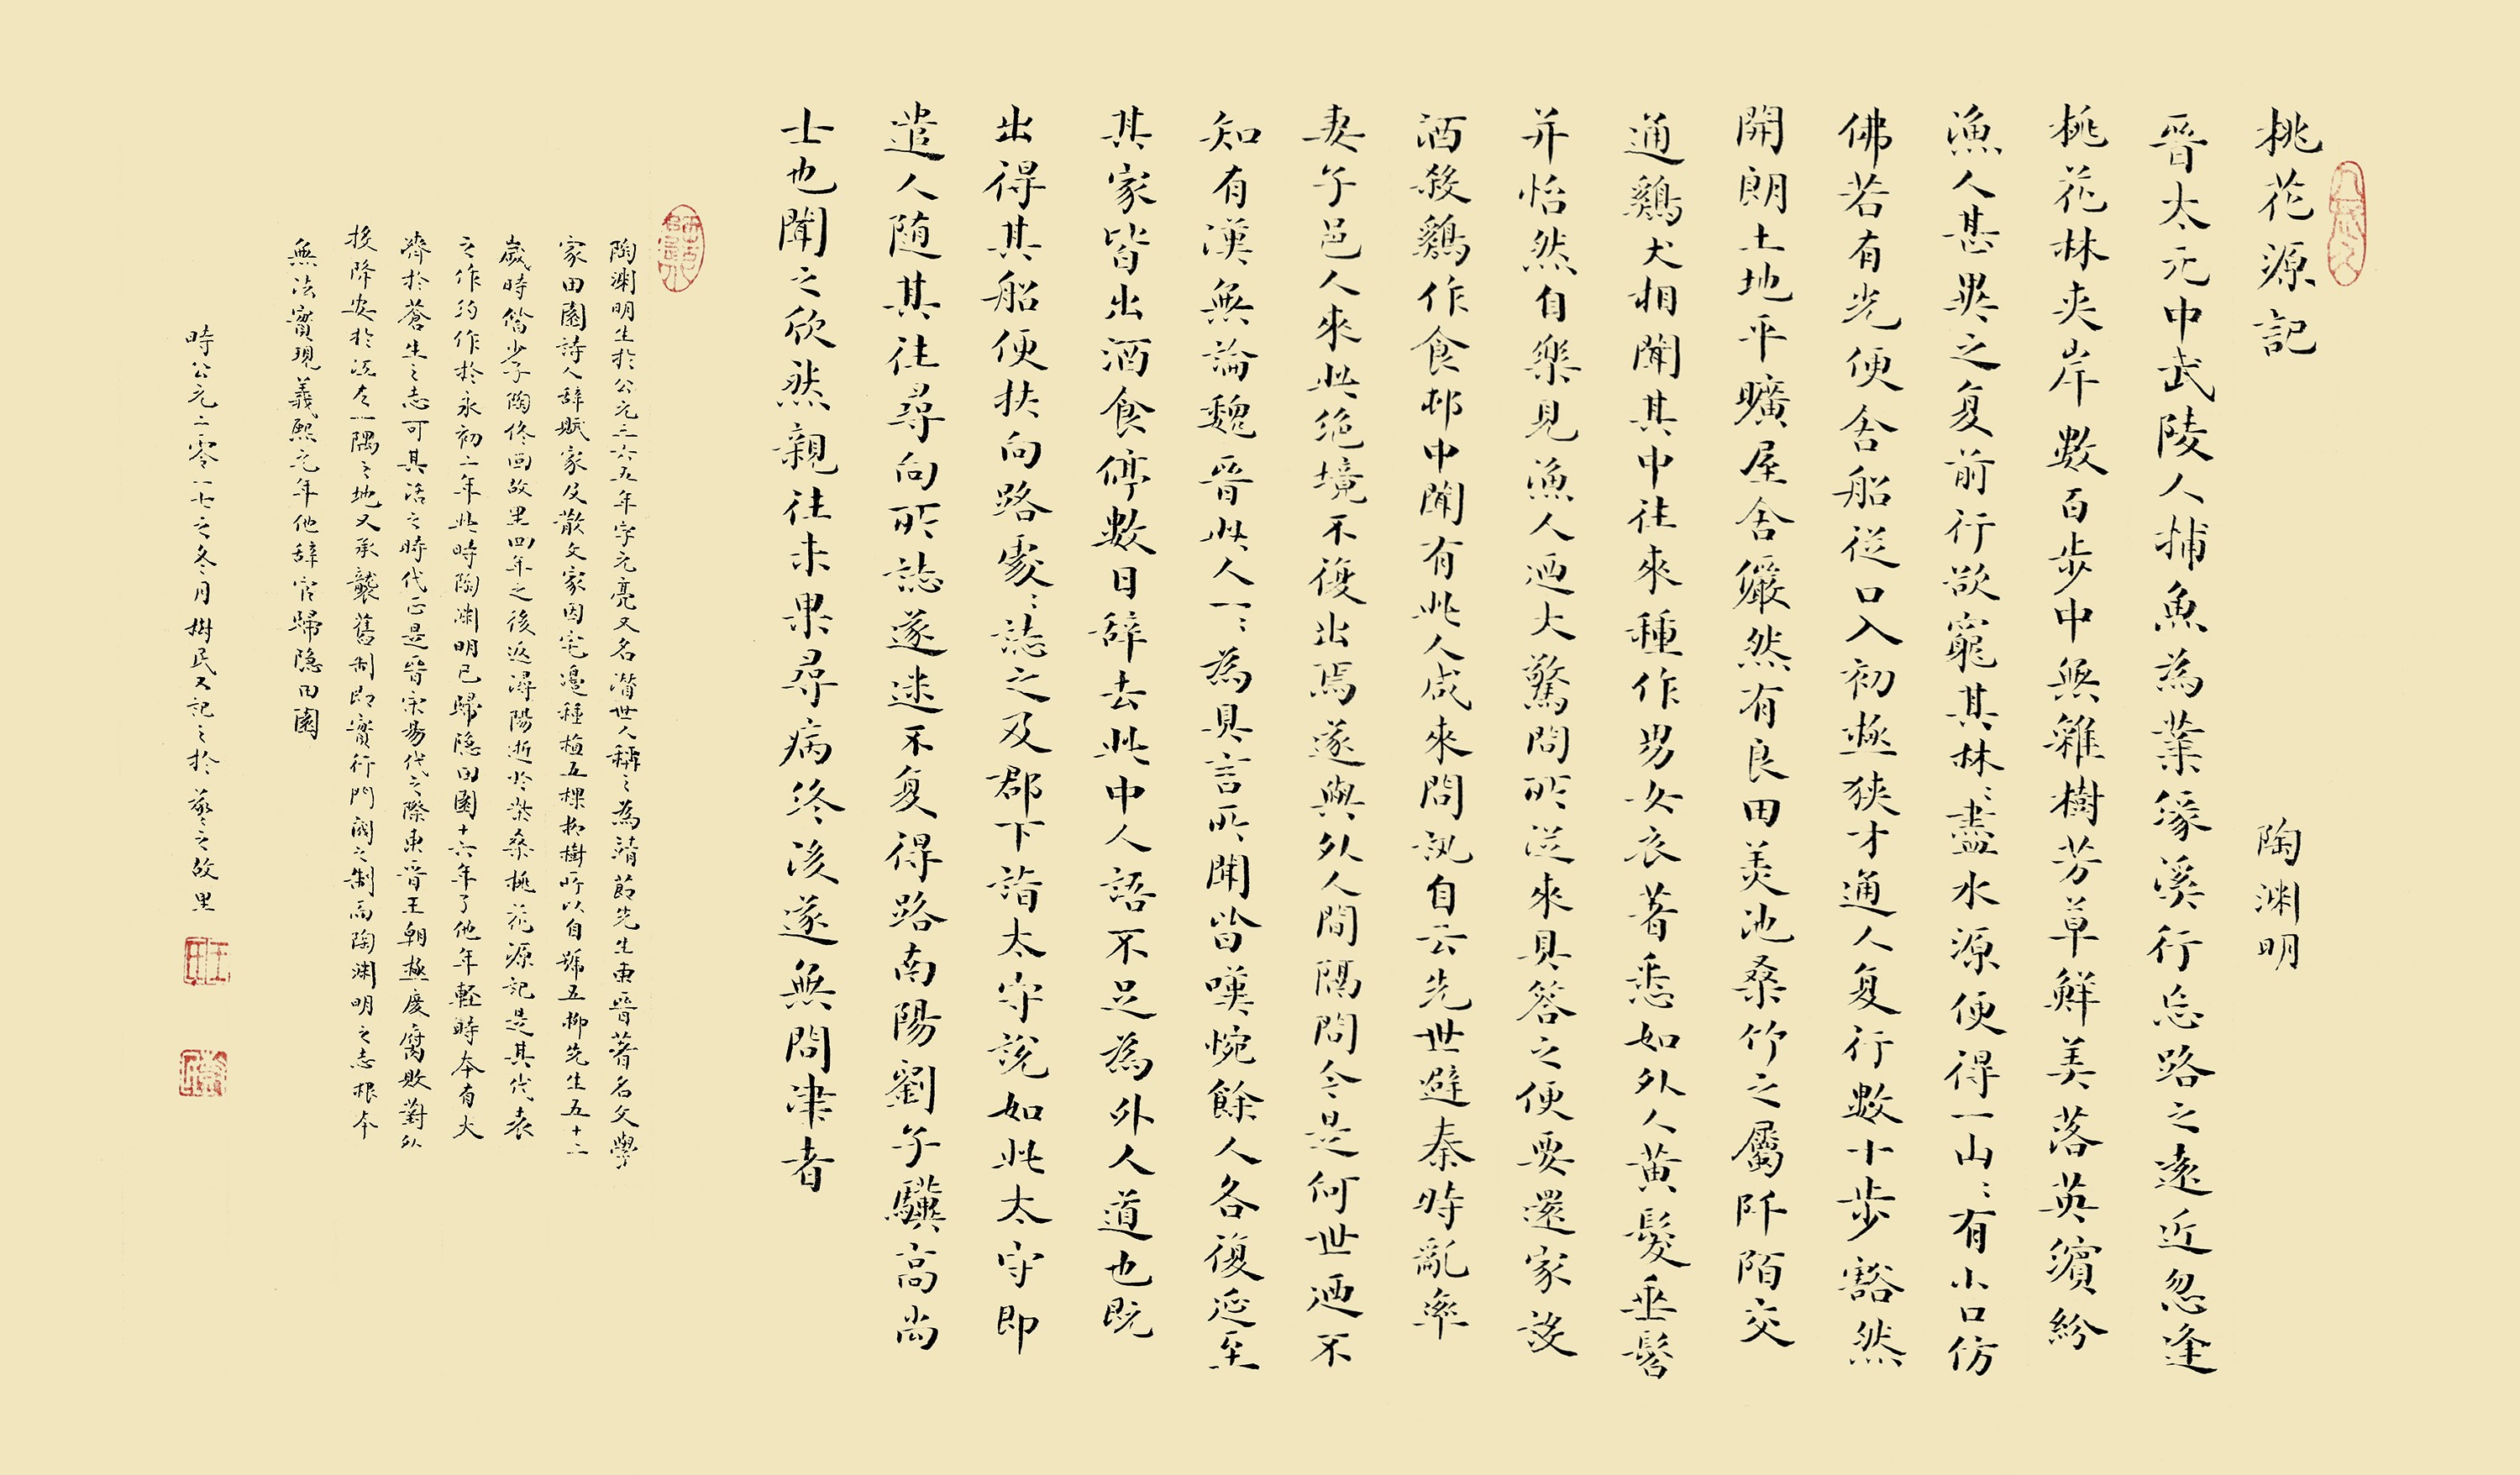 桃花源記 陶渊明
晉太元中武陵人捕魚為業缘溪行忘路之遠近忽逢
桃花林夹岸數百步中無雜樹芳草鮮美落英濱紛
漁人甚異之复前行欲窮其林〻盡水源便得一山〻有小口仿
佛若有光便舍船從口入初極狹才通人复行數十步豁然
開朗土地平曠屋舍儼然有良田美池桑竹之屬阡陌交
通鷄犬相聞其中往來種作男女衣著悉如外人黄髮垂髫
并怡然自樂見漁人迺大驚問所從來具答之便要還家設
酒殺鷄作食邨中聞有此人咸來問訊自云先世避秦時亂率
妻子邑人來此绝境不復出焉遂與外人間隔問今是何世迺不
知有漢無論魏晉此人一〻為具言所聞皆嘆惋餘人各復延至
其家皆出酒食停數日辭去此中人語不足為外人道也既
出得其船便扶向路處〻誌之及郡下詣太守說如此太守即
遣人随其往尋向所誌遂迷不复得路南陽劉子驥高尚
士也聞之欣然親往未果尋病终後遂無問津者
陶渊明生於公元三六五年字元亮又名潜世人稱之為靖節先生東晉著名文學
家田園詩人辞賦家及散文家因宅邊種植五棵柳樹所以自號五柳先生五十二
歲時偕少子陶佟回故里四年之後返潯陽逝於柴桑桃花源記是其代表
之作约作於永初二年此時陶渊明已歸隐田園十六年了他年輕時本有大
濟於蒼生之志可其活之時代正是晉宋易代之際東晉王朝極度腐敗對外
投降安於江左一隅之地又承襲舊制即實行門阀之制而陶渊明之志根本
無法實現義熙元年他辞官歸隐田園
時公元二零一七之冬月樹民又記之於 之故里